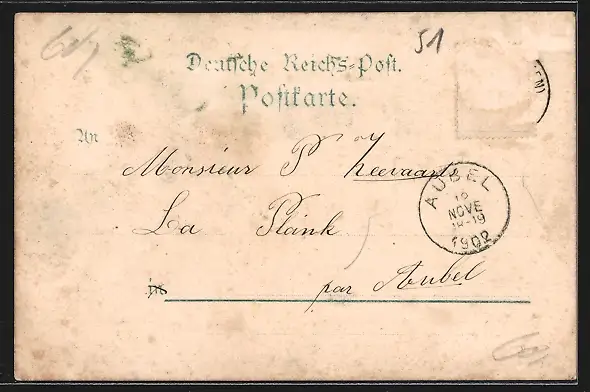 51
Deutsche Reichs-Post.
Postkarte.
An
Monsieur P Heevaart
La Plank
par Aubel
in
AUBEL
NOVE
18-19
1902
EN)